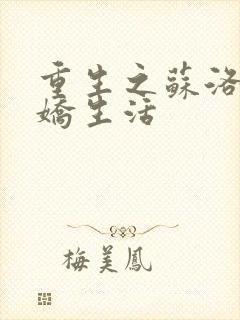 重生之蘇洛
嬌生活
梅美鳳